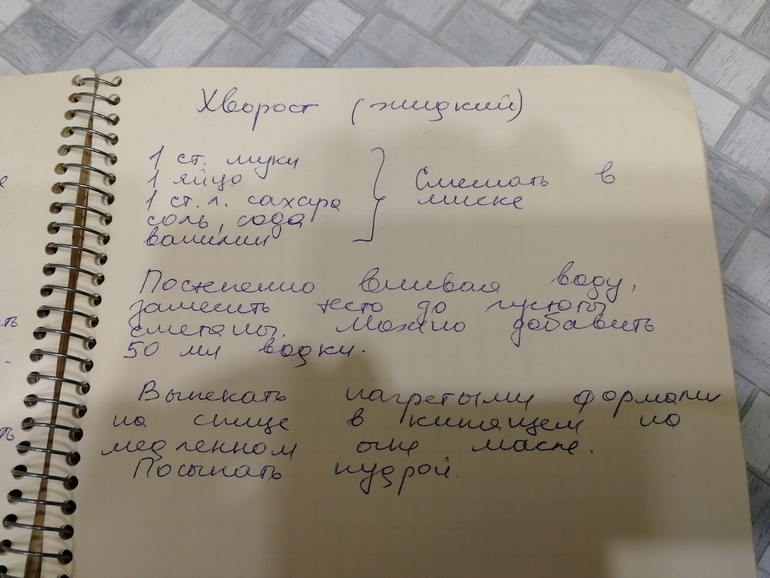 Хворост (жидкий)
1 ст. муки
1 яйцо
1 ст. л. сахара
соль, сода
ванилин
Смешать в
миске
Постепенно вливая воду,
замесить тесто до густоты
сметаны. Можно добавить
50 мл водки.
Выпекать нагретыми формами
на спице в кипящем на
медленном огне масле.
Посыпать пудрой.
ть
ть